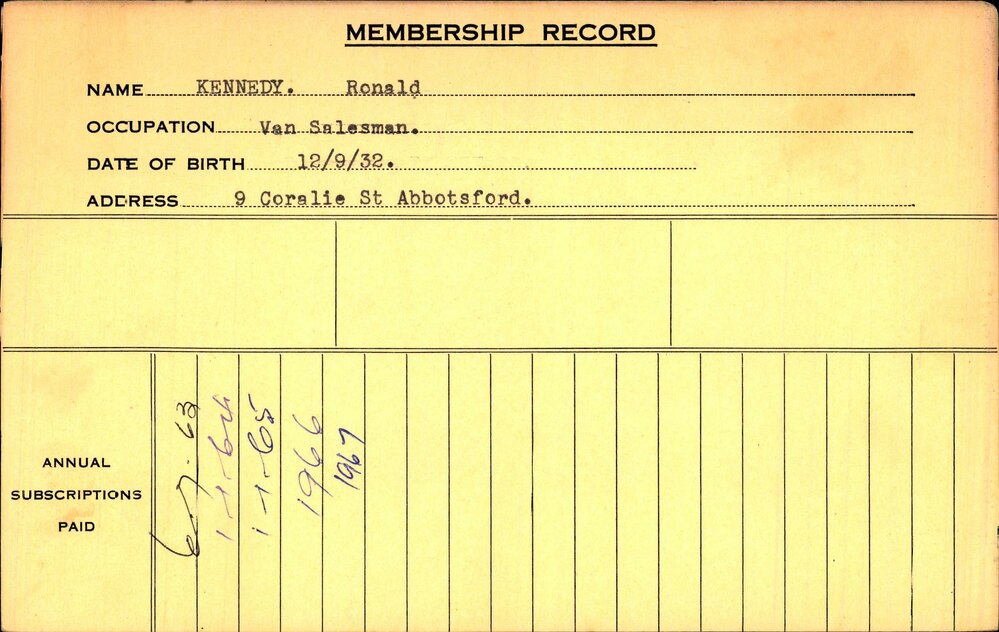 MEMBERSHIP RECORD
NAME KENNEDY. Ronald
OCCUPATION Van Salesman.
DATE OF BIRTH 12/9/32.
ADDRESS 9 Coralie St Abbotsford.
ANNUAL
SUBSCRIPTIONS
PAID
6-7-63
1-1-64
1-1-65
1966
1967